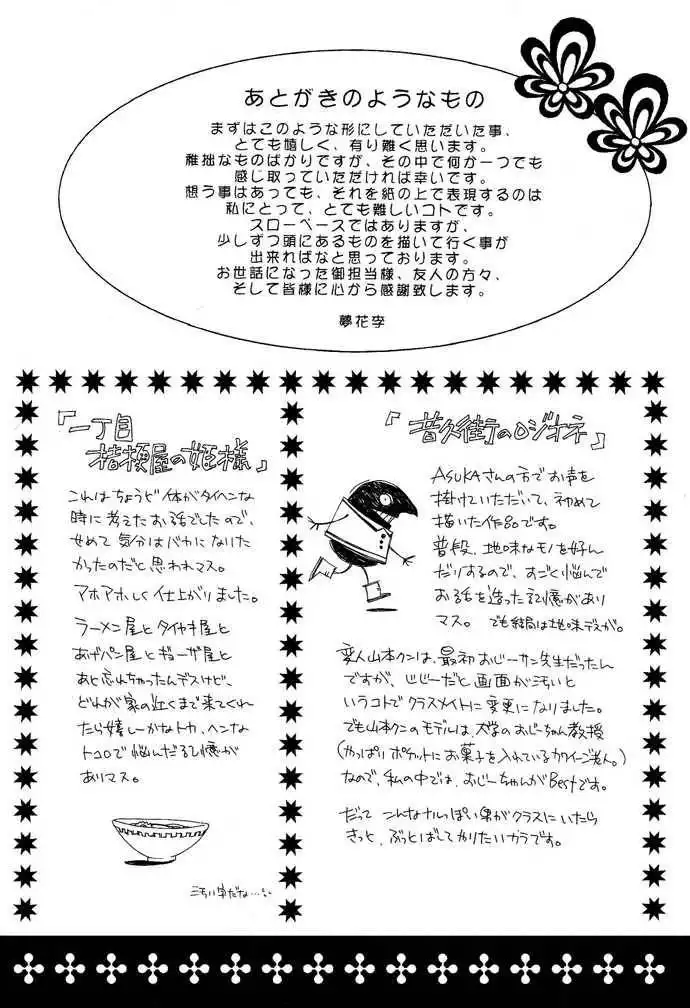 あとがきのようなもの
まずはこのような形にしていただいた事、
とても嬉しく、有り難く思います。
稚拙なものばかりですが、その中で何か一つでも
感じ取っていただければ幸いです。
想う事はあっても、それを紙の上で表現するのは
私にとって、とても難しいコトです。
スローペースではありますが、
少しずつ頭にあるものを描いて行く事が
出来ればなと思っております。
お世話になった御担当様、友人の方々、
そして皆様に心から感謝致します。
夢花李
『一丁目
桔梗屋の姫様』
これはちょうど体がタイヘンな
時に考えたお話でしたので、
せめて気分はバカになりた
かったのだと思われマス。
アホアホしく仕上がりました。
ラーメン屋とタイヤキ屋と
あげパン屋とギョーザ屋と
あと忘れちゃったんデスけど、
どれが家の近くまで来てくれ
たら嬉しーかなトカ、ヘンな
トコロで悩んだ記憶が
ありマス。
汚い字だな…
『音久街のロジオネ』
ASUKAさんの方でお声を
掛けていただいて、初めて
描いた作品です。
普段、地味なモノを好ん
だりするので、すごく悩んで
お話を造った記憶があり
マス。でも結局は地味デスが。
変人山本クンは、最初おじーサン先生だったん
ですが、じじーだと画面が汚いと
いうコトでクラスメイトに変更になりました。
でも山本クンのモデルは、大学のおじーちゃん教授
(やっぱりポケットにお菓子を入れているカワイージ老人。)
なので、私の中では、おじーちゃんがBestです。
だって こんなナルっぽい男がクラスにいたら
きっと、ぶっとばしてやりたいカラです。